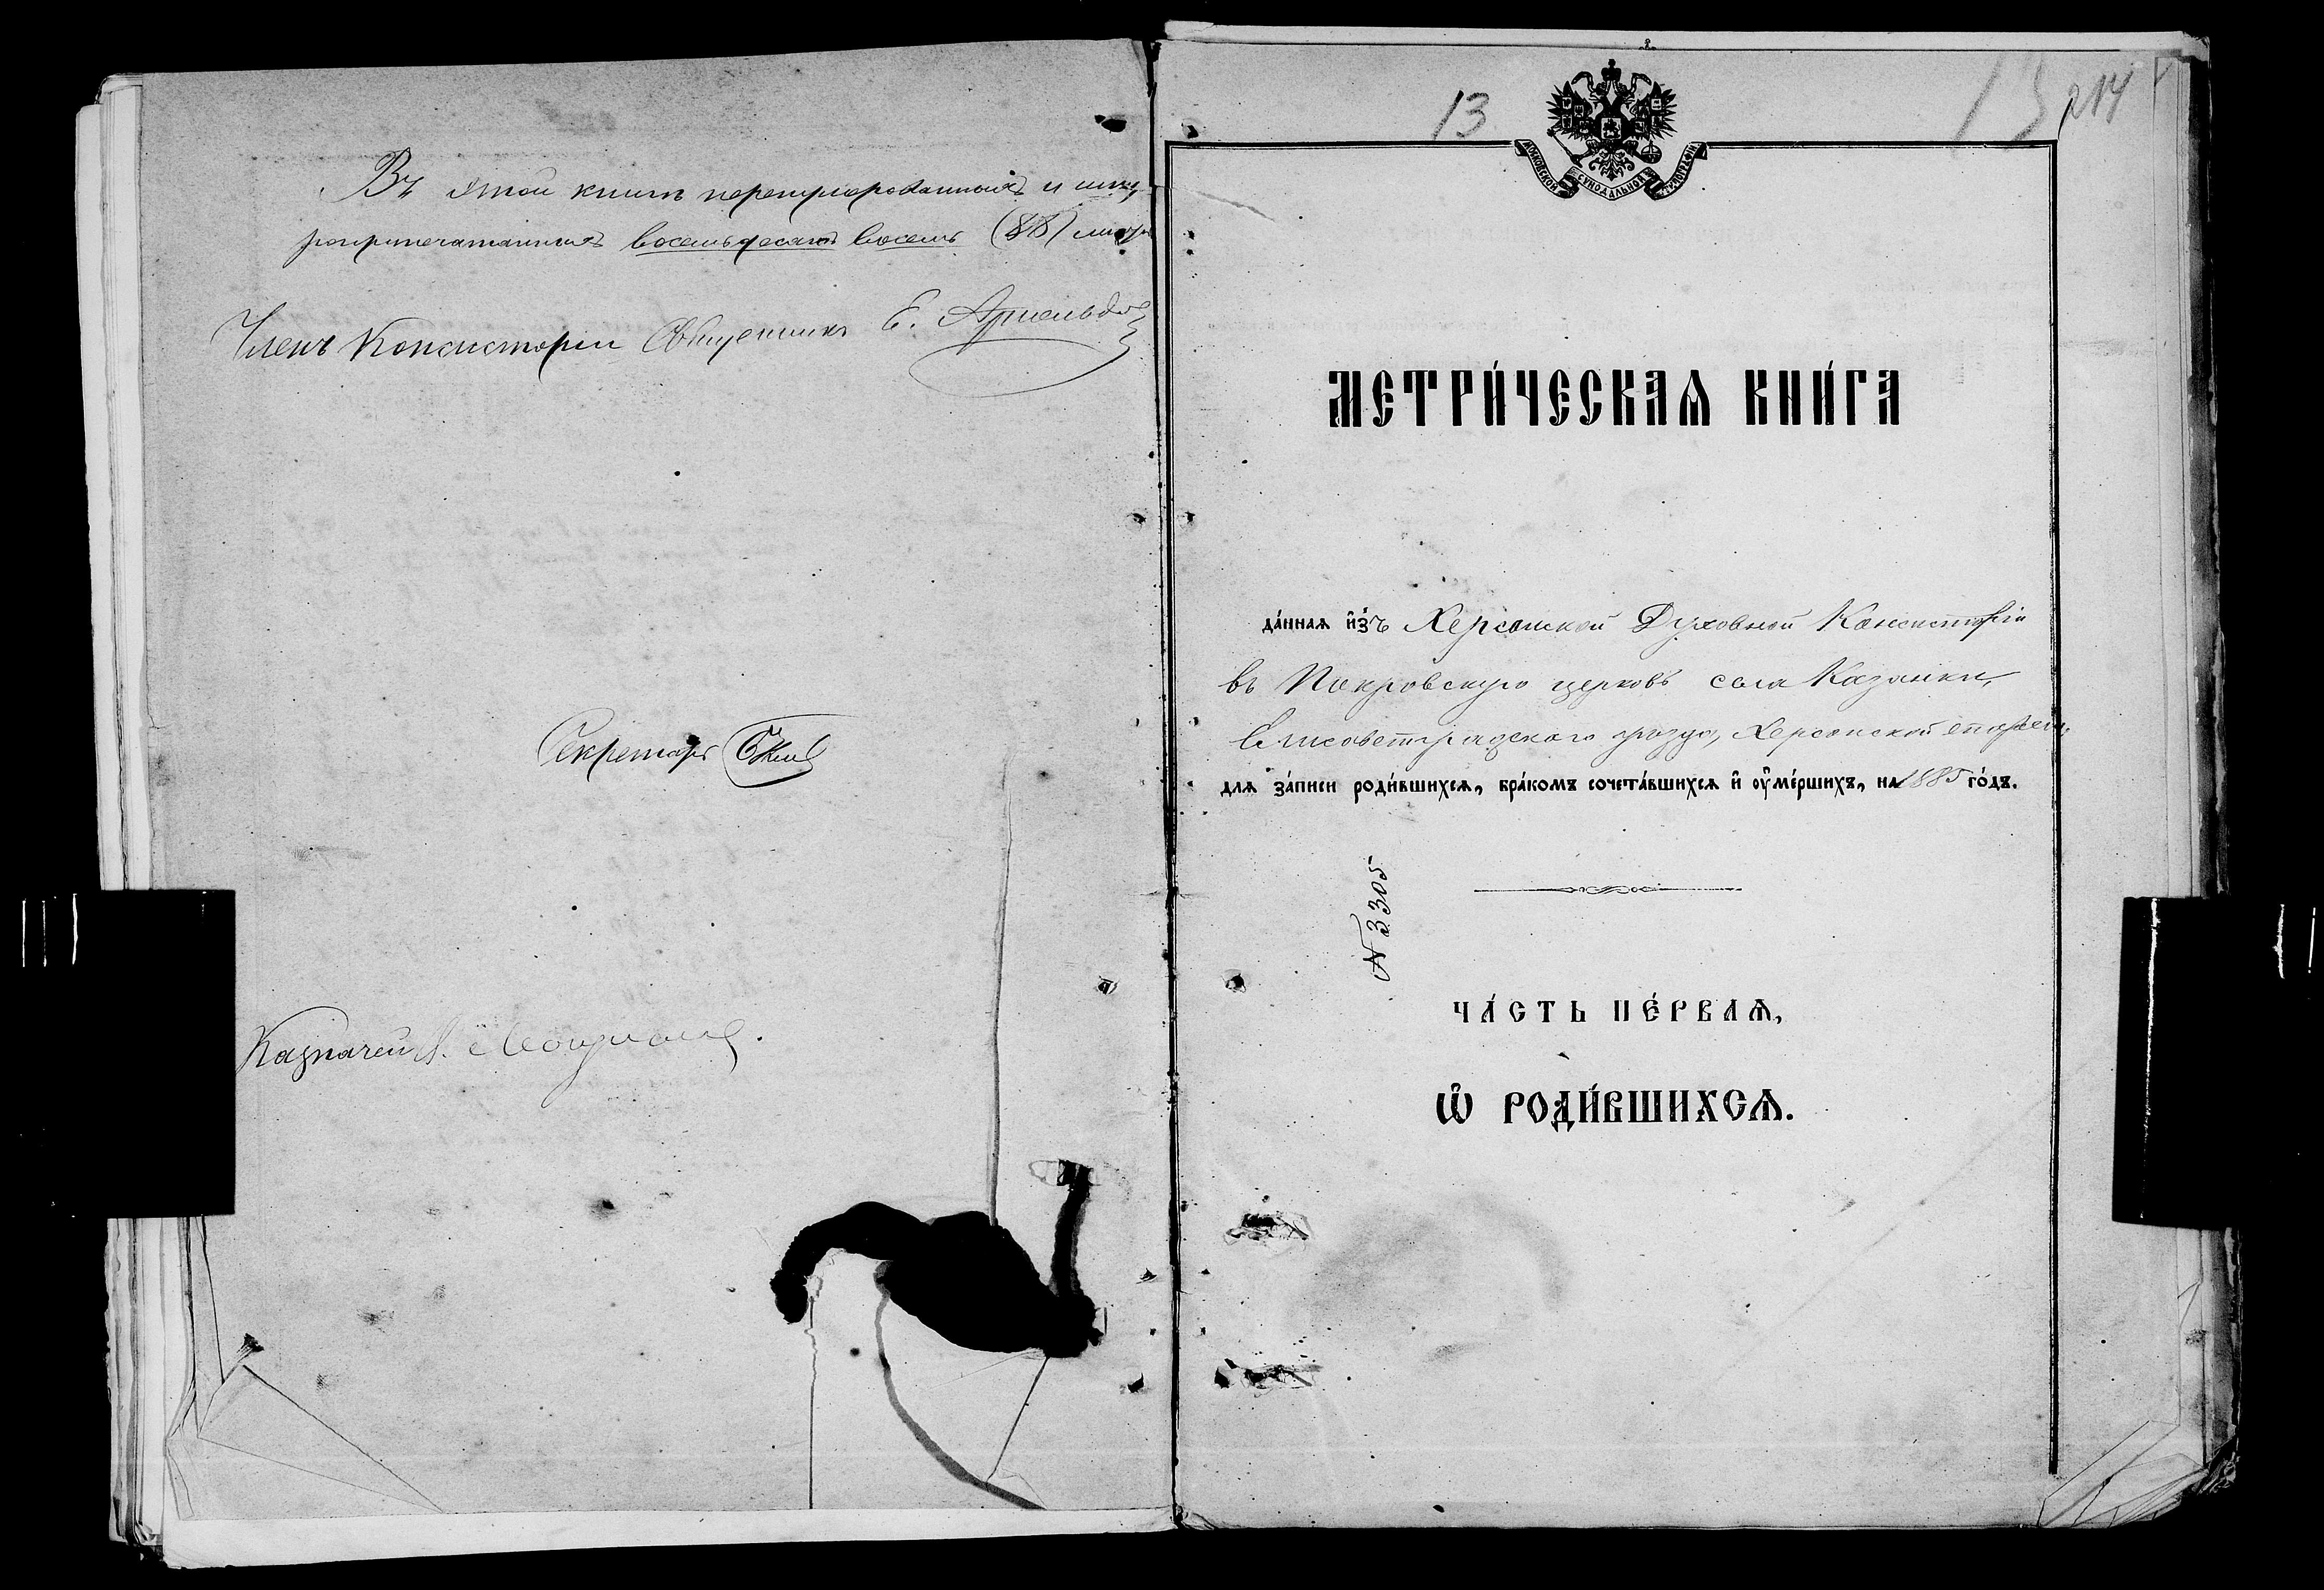 Въ этой книгѣ перенумерованныхъ и шну-
роприпечатанныхъ восемьдесятъ восемь (88) листовъ
Членъ Консисторіи Священникъ Е.
Секретарь
Казначей
13
214
МОСКОВСКОЙ СѴНОДАЛЬНОЙ ТИПОГРАФІИ
МЕТРИ́ЧЕСКАѦ КНИ́ГА
да́ннаѧ и҆зъ Херсонской Духовной Консисторіи
въ Покровскую церковь села Казанки,
Елисаветградскаго уѣзда, Херсонской епархіи,
длѧ за́писи роди́вшихсѧ, бра́комъ сочета́вшихсѧ и҆ ᲂу҆ме́ршихъ, на 1885 го́дъ.
№ 3305
ЧА́СТЬ ПЕ́РВАѦ,
Ѽ РОДИ́ВШИХСѦ.